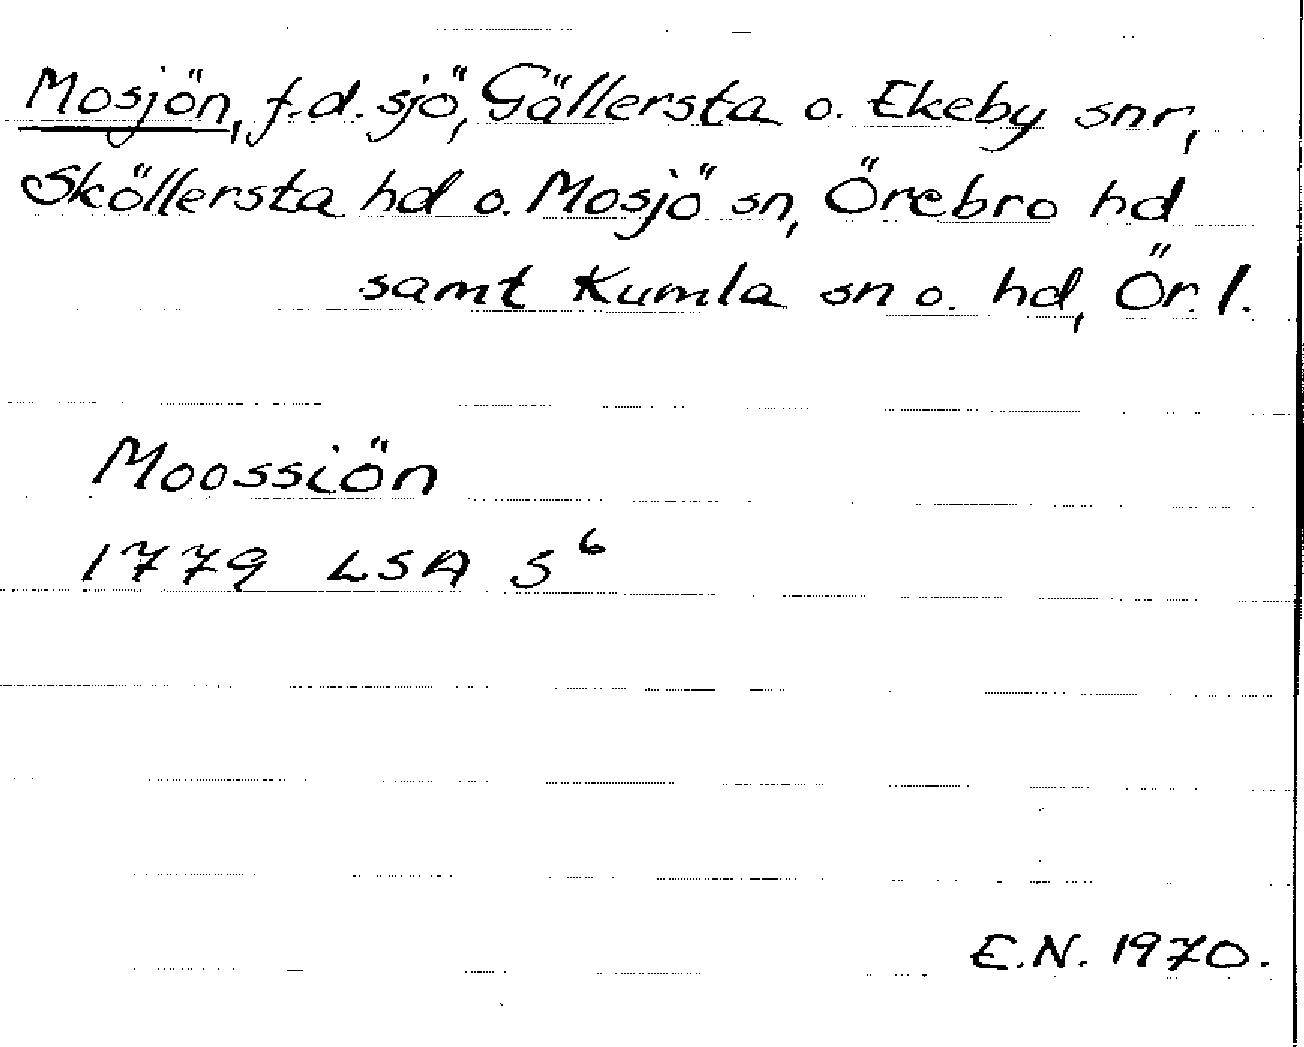 Mosjön, f.d. sjö, Gällersta o. Ekeby snr,
Sköllersta hd o. Mosjö sn, Örebro hd
samt Kumla sn o. hd, Ör. l.
Moossiön
1779 LSA S⁶
E.N. 1970.